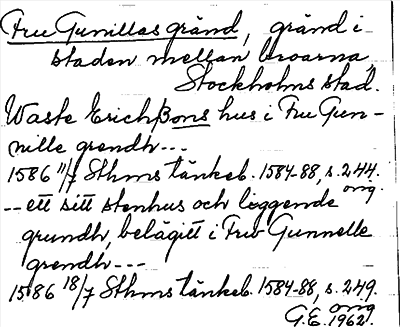 Fru Gunillas gränd, gränd i
staden mellan broarna,
Stockholms stad.
Waste Erichßons hus i Fru Gun-
nille grendh---
1586 11/7 Sthms tänkeb. 1584-88, s. 244.
orig.
-- ett sitt stenhus och liggende
grundh, belägitt i Frw Gunnelle
grendh---
1586 18/7 Sthms tänkeb. 1584-88, s. 249.
orig
G.E. 1962.